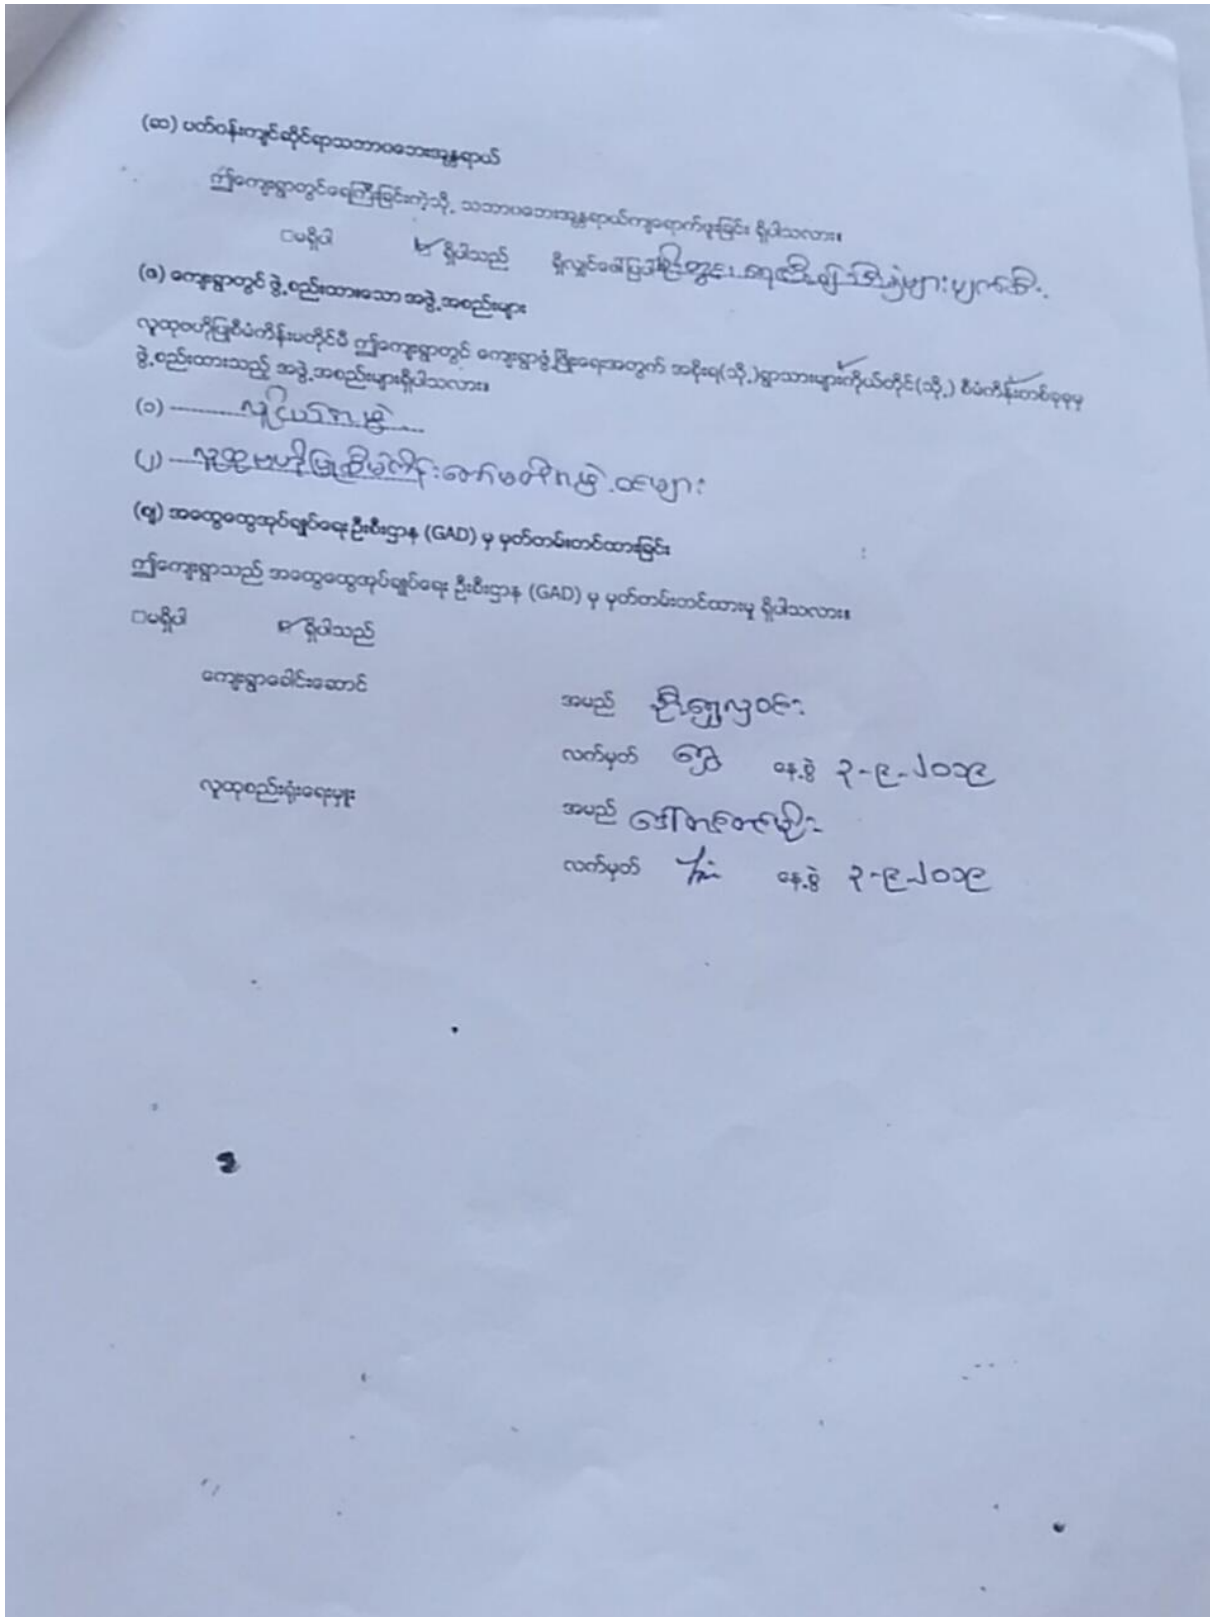 (ဆ) ပတ်ဝန်းကျင်ဆိုင်ရာသဘာဝဘေးအန္တရာယ်
ဤကျေးရွာတွင်ရေကြီးခြင်းကဲ့သို့ သဘာဝဘေးအန္တရာယ်ကျရောက်ဖူးခြင်း ရှိပါသလား။
□မရှိပါ ☑ ရှိပါသည် ရှိလျှင်ဖေါ်ပြပါ မိုးတွင်းရေကြီး၍ များပျက်စီး
(ဇ) ကျေးရွာတွင် ဖွဲ့စည်းထားသော အဖွဲ့အစည်းများ
လူထုဗဟိုပြုစီမံကိန်းမတိုင်မီ ဤကျေးရွာတွင် ကျေးရွာဖွံ့ဖြိုးရေးအတွက် အစိုးရ(သို့)ရွာသားများကိုယ်တိုင်(သို့) စီမံကိန်းတစ်ခုခုမှ
ဖွဲ့စည်းထားသည့် အဖွဲ့အစည်းများရှိပါသလား။
(၁) လူငယ်အဖွဲ့
(၂) လူထုဗဟိုပြုစီမံကိန်းကော်မတီအဖွဲ့ဝင်များ
(ဈ) အထွေထွေအုပ်ချုပ်ရေးဦးစီးဌာန (GAD) မှ မှတ်တမ်းတင်ထားခြင်း
ဤကျေးရွာသည် အထွေထွေအုပ်ချုပ်ရေး ဦးစီးဌာန (GAD) မှ မှတ်တမ်းတင်ထားမှု ရှိပါသလား။
□မရှိပါ ☑ ရှိပါသည်
ကျေးရွာခေါင်းဆောင် အမည် ဦးရွှေလှဝင်း
လက်မှတ် ရွှေ နေ့စွဲ ၃-၉-၂၀၁၉
လူထုစည်းရုံးရေးမှူး အမည် ဒေါ်တင်တင်မိုး
လက်မှတ် နေ့စွဲ ၃-၉-၂၀၁၉